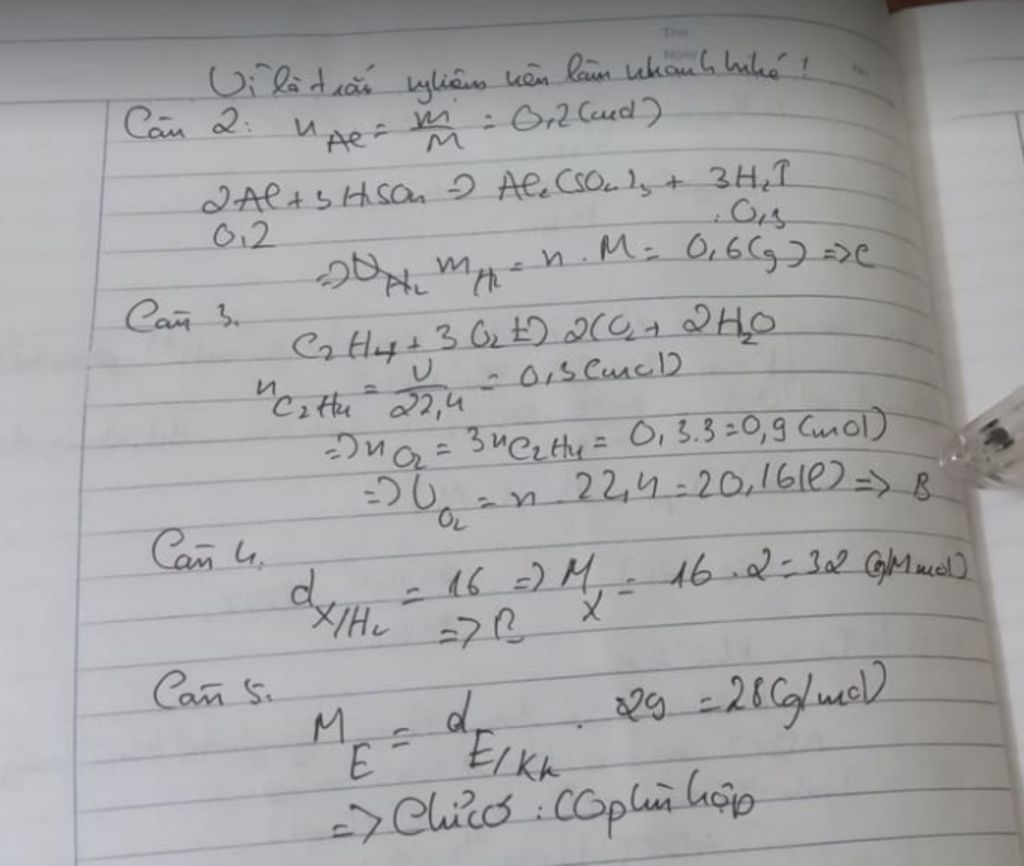 Thứ
Ngày No.
Vì là trắc nghiệm nên làm nhanh nhé!
Câu 2: n Al = m/M = 0,2 (mol)
2Al + 3H₂SO₄ => Al₂(SO₄)₃ + 3H₂↑
0,2 0,3
=> m H₂ = n . M = 0,6 (g) => C
Câu 3.
C₂H₄ + 3O₂ t) 2CO₂ + 2H₂O
n C₂H₄ = V/22,4 = 0,3 (mol)
=> n O₂ = 3n C₂H₄ = 0,3.3 = 0,9 (mol)
=> V O₂ = n . 22,4 = 20,16 (l) => B
Câu 4.
d X/H₂ = 16 => M X = 16 . 2 = 32 (g/mol)
=> B
Câu 5.
M E = d E/KK . 29 = 28 (g/mol)
=> Chỉ có : CO phù hợp